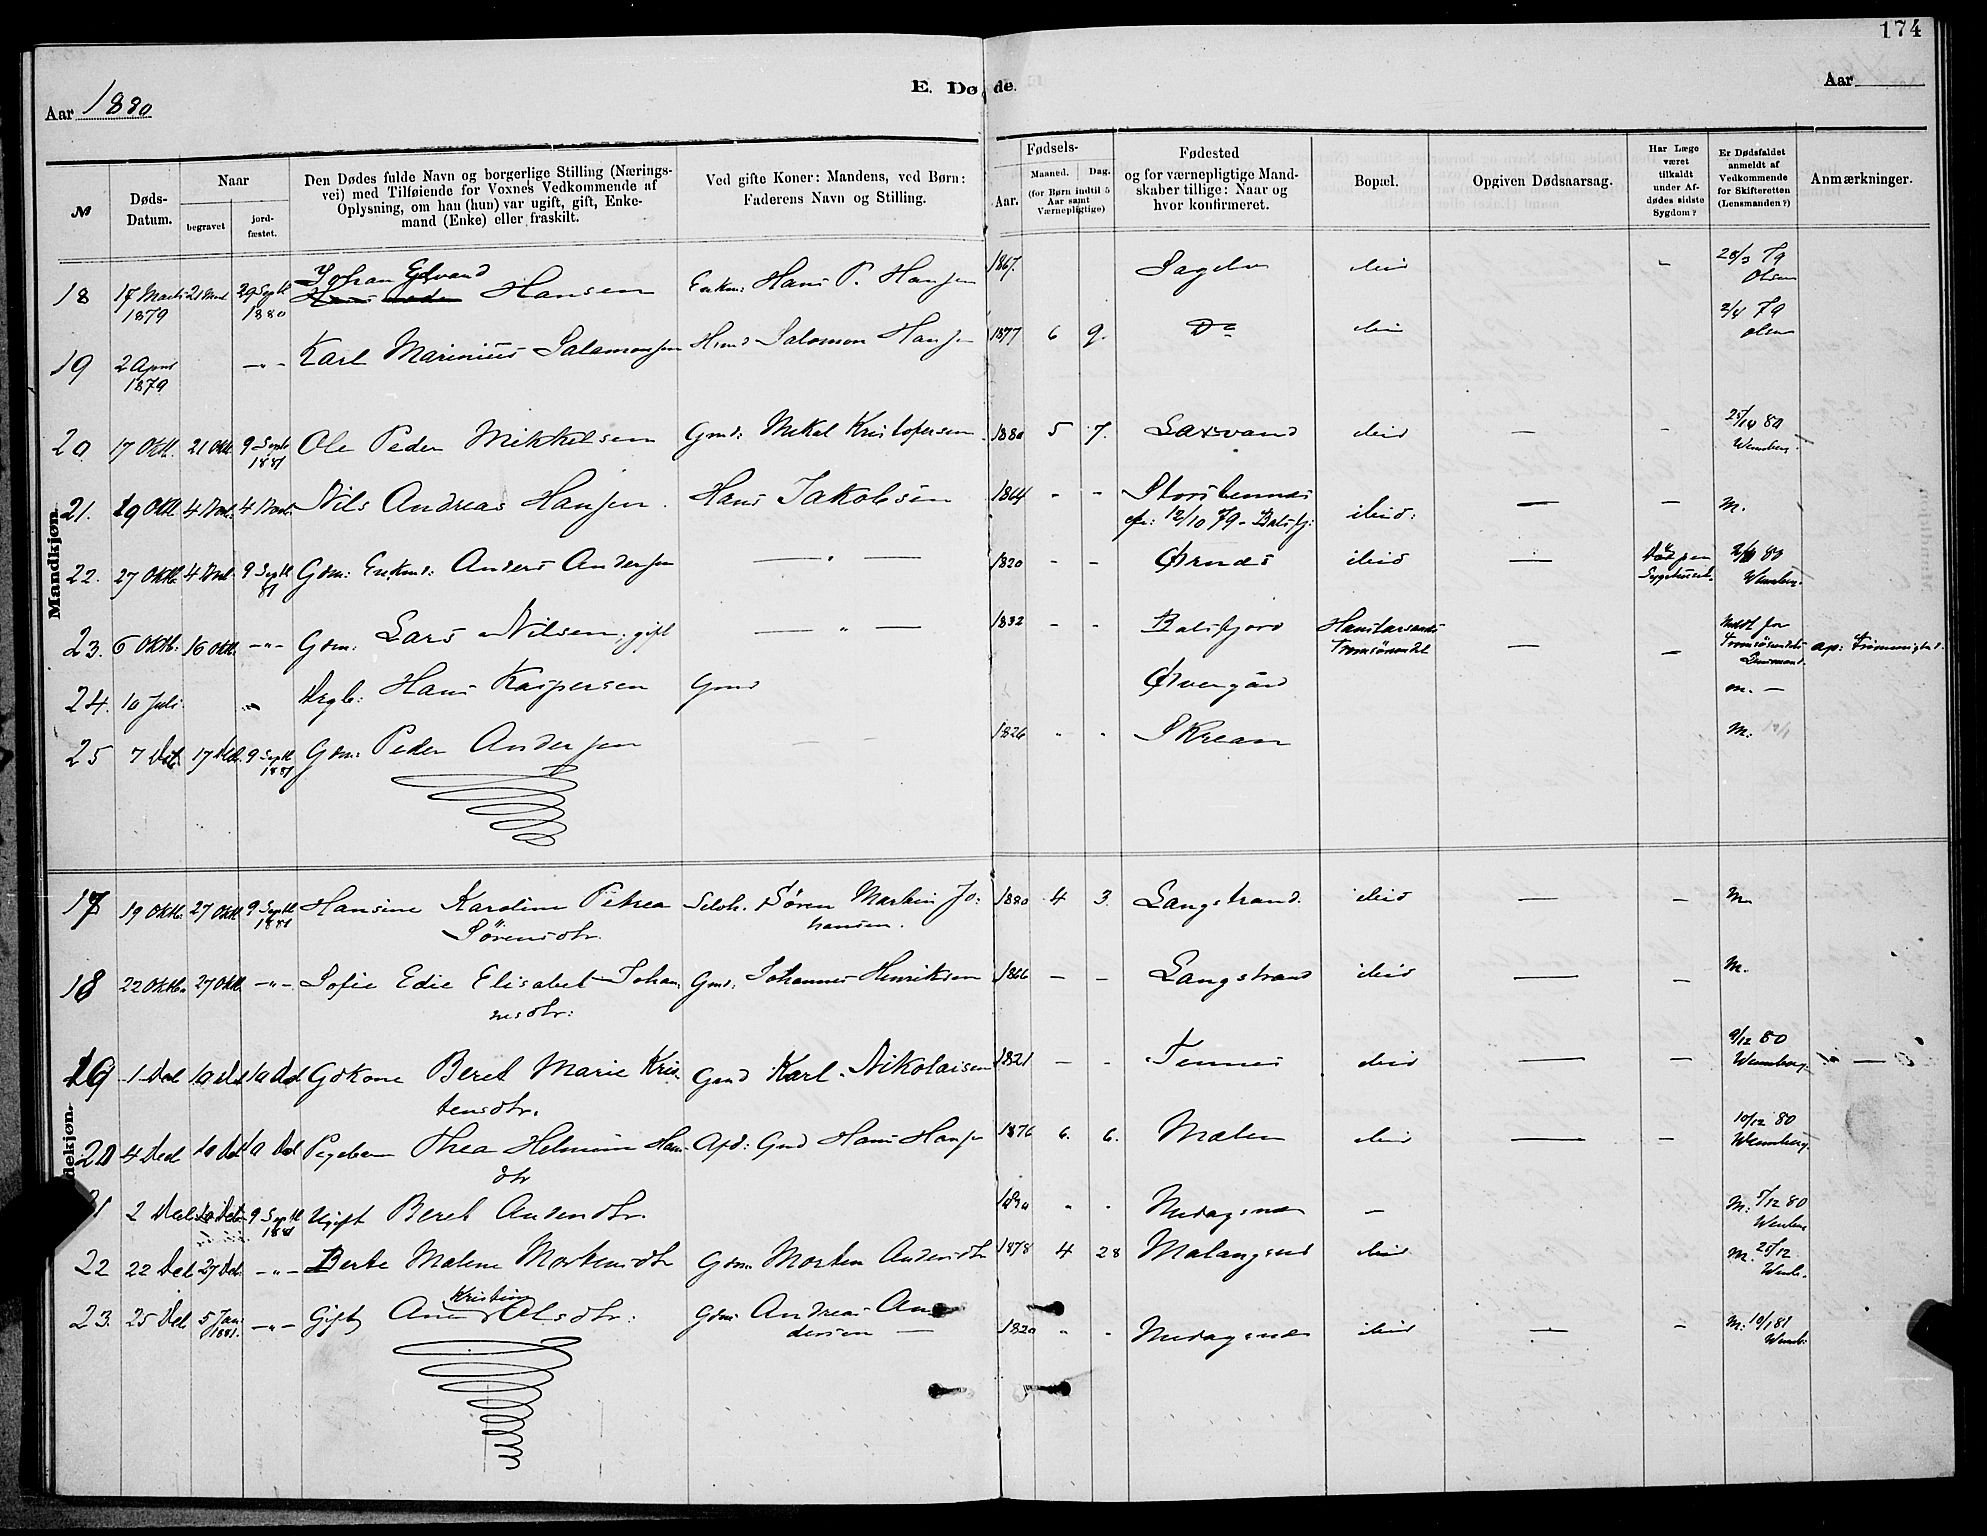 174
Aar 1880
E. Døde.
Aar
№
Døds-Datum.
Naar
begravet
jord-fæstet.
Den Dødes fulde Navn og borgerlige Stilling (Nærings-
vei) med Tilføiende for Voxnes Vedkommende af
Oplysning, om han (hun) var ugift, gift, Enke-
mand (Enke) eller fraskilt.
Ved gifte Koner: Mandens, ved Børn:
Faderens Navn og Stilling.
Fødsels-
Aar.
Maaned.
Dag.
(for Børn indtil 5
Aar samt
Værnepligtige)
Fødested
og for værnepligtige Mand-
skaber tillige: Naar og
hvor konfirmeret.
Bopæl.
Opgiven Dødsaarsag.
Har Læge
været
tilkaldt
under Af-
dødes sidste
Sygdom?
Er Dødsfaldet
anmeldt af
Vedkommende
for Skifteretten
(Lensmanden?)
Anmærkninger.
Mandkjøn.
18 17 Marts 1879 29 Sept 1880 Johan Edvard Hansen Hans P. Hansen 1867. Sagelv ibid - 28/3 79 Olsen
19 2 April 1879 -"- Karl Marinius Salamonsen Salomon Hansen 1877 6 9. Do ibid 2/4 79 Olsen
20 17 Oktb. 21 Oktb 9 Septb 1881 Ole Peder Mikkelsen Gmd: Mikal Kristofersen 1880 5 7. Laxvand ibid — - 25/10 80 Wennberg.
21. 29 Oktb 4 Novb. 4 Novb. Nils Andreas Hansen. Hans Jakobsen 1864 - - Storstennes
12/10 79 - Balsfj: ibid: — - M.
22. 27 Oktb. 4 Novb 9 Septb 81 Gdm: Enkmd: Anders Andersen — " — 1820 - - Ørnæs ibid — 80 Wennberg.
23. 6 Oktb: 16 Oktb. -"- Gdm: Lars Nilsen, gift — " — 1832 - - Balsfjord Tromsøsundet — - Tromsøsundets
24. 10 Juli " Hans Kaspersen Gmd Øvergård m. —
25 7 Decb. 17 Decb. 9 Septb 1881 Gdm: Peder Andersen — — 1826 " " Skrean M:
17 19 Oktb. 27 Oktb 9 Septb 1881 Hansine Karoline Petrea Selvh. Søren Martin Jo- 1880 4 3. Langstrand. ibid — - M.
Sørensdtr. hansen.
18 22 Oktb. 27 Oktb -"- Sofie Edie Elisabet Johan- Gmd: Johannes Henriksen 1866 — - Langstrand ibid — - M.
nesdtr:
19 1 Decb 10 Decb 10 Decb Gdkone Beret Marie Kris- Gmd Karl Nikolaisen 1821 — - Tennes ibid — - 9/12 80 Wennberg. —
tensdtr.
20 4 Decb 10 Decb 10 Decb Pigebarn Thea Helmine Hans- Gmd Hans Hansen 1876 6. 6. Malen ibid — - 10/12 80 Wennberg.
dtr
21 2 Decb 9 Septb 1881 Ugift Beret Andersdtr. " " - M: 5/12 80
22 22 Decb 27 Decb. -"- Berte Malene Mortensdtr Gdm. Morten 1878 4 28 ibid M.
23. 25 Decb 5 Jan. 1881. -"- Gift Kristine Olsdtr: Gdm: Andreas An-
dersen — 1820 " " ibid — - M: 10/1 81